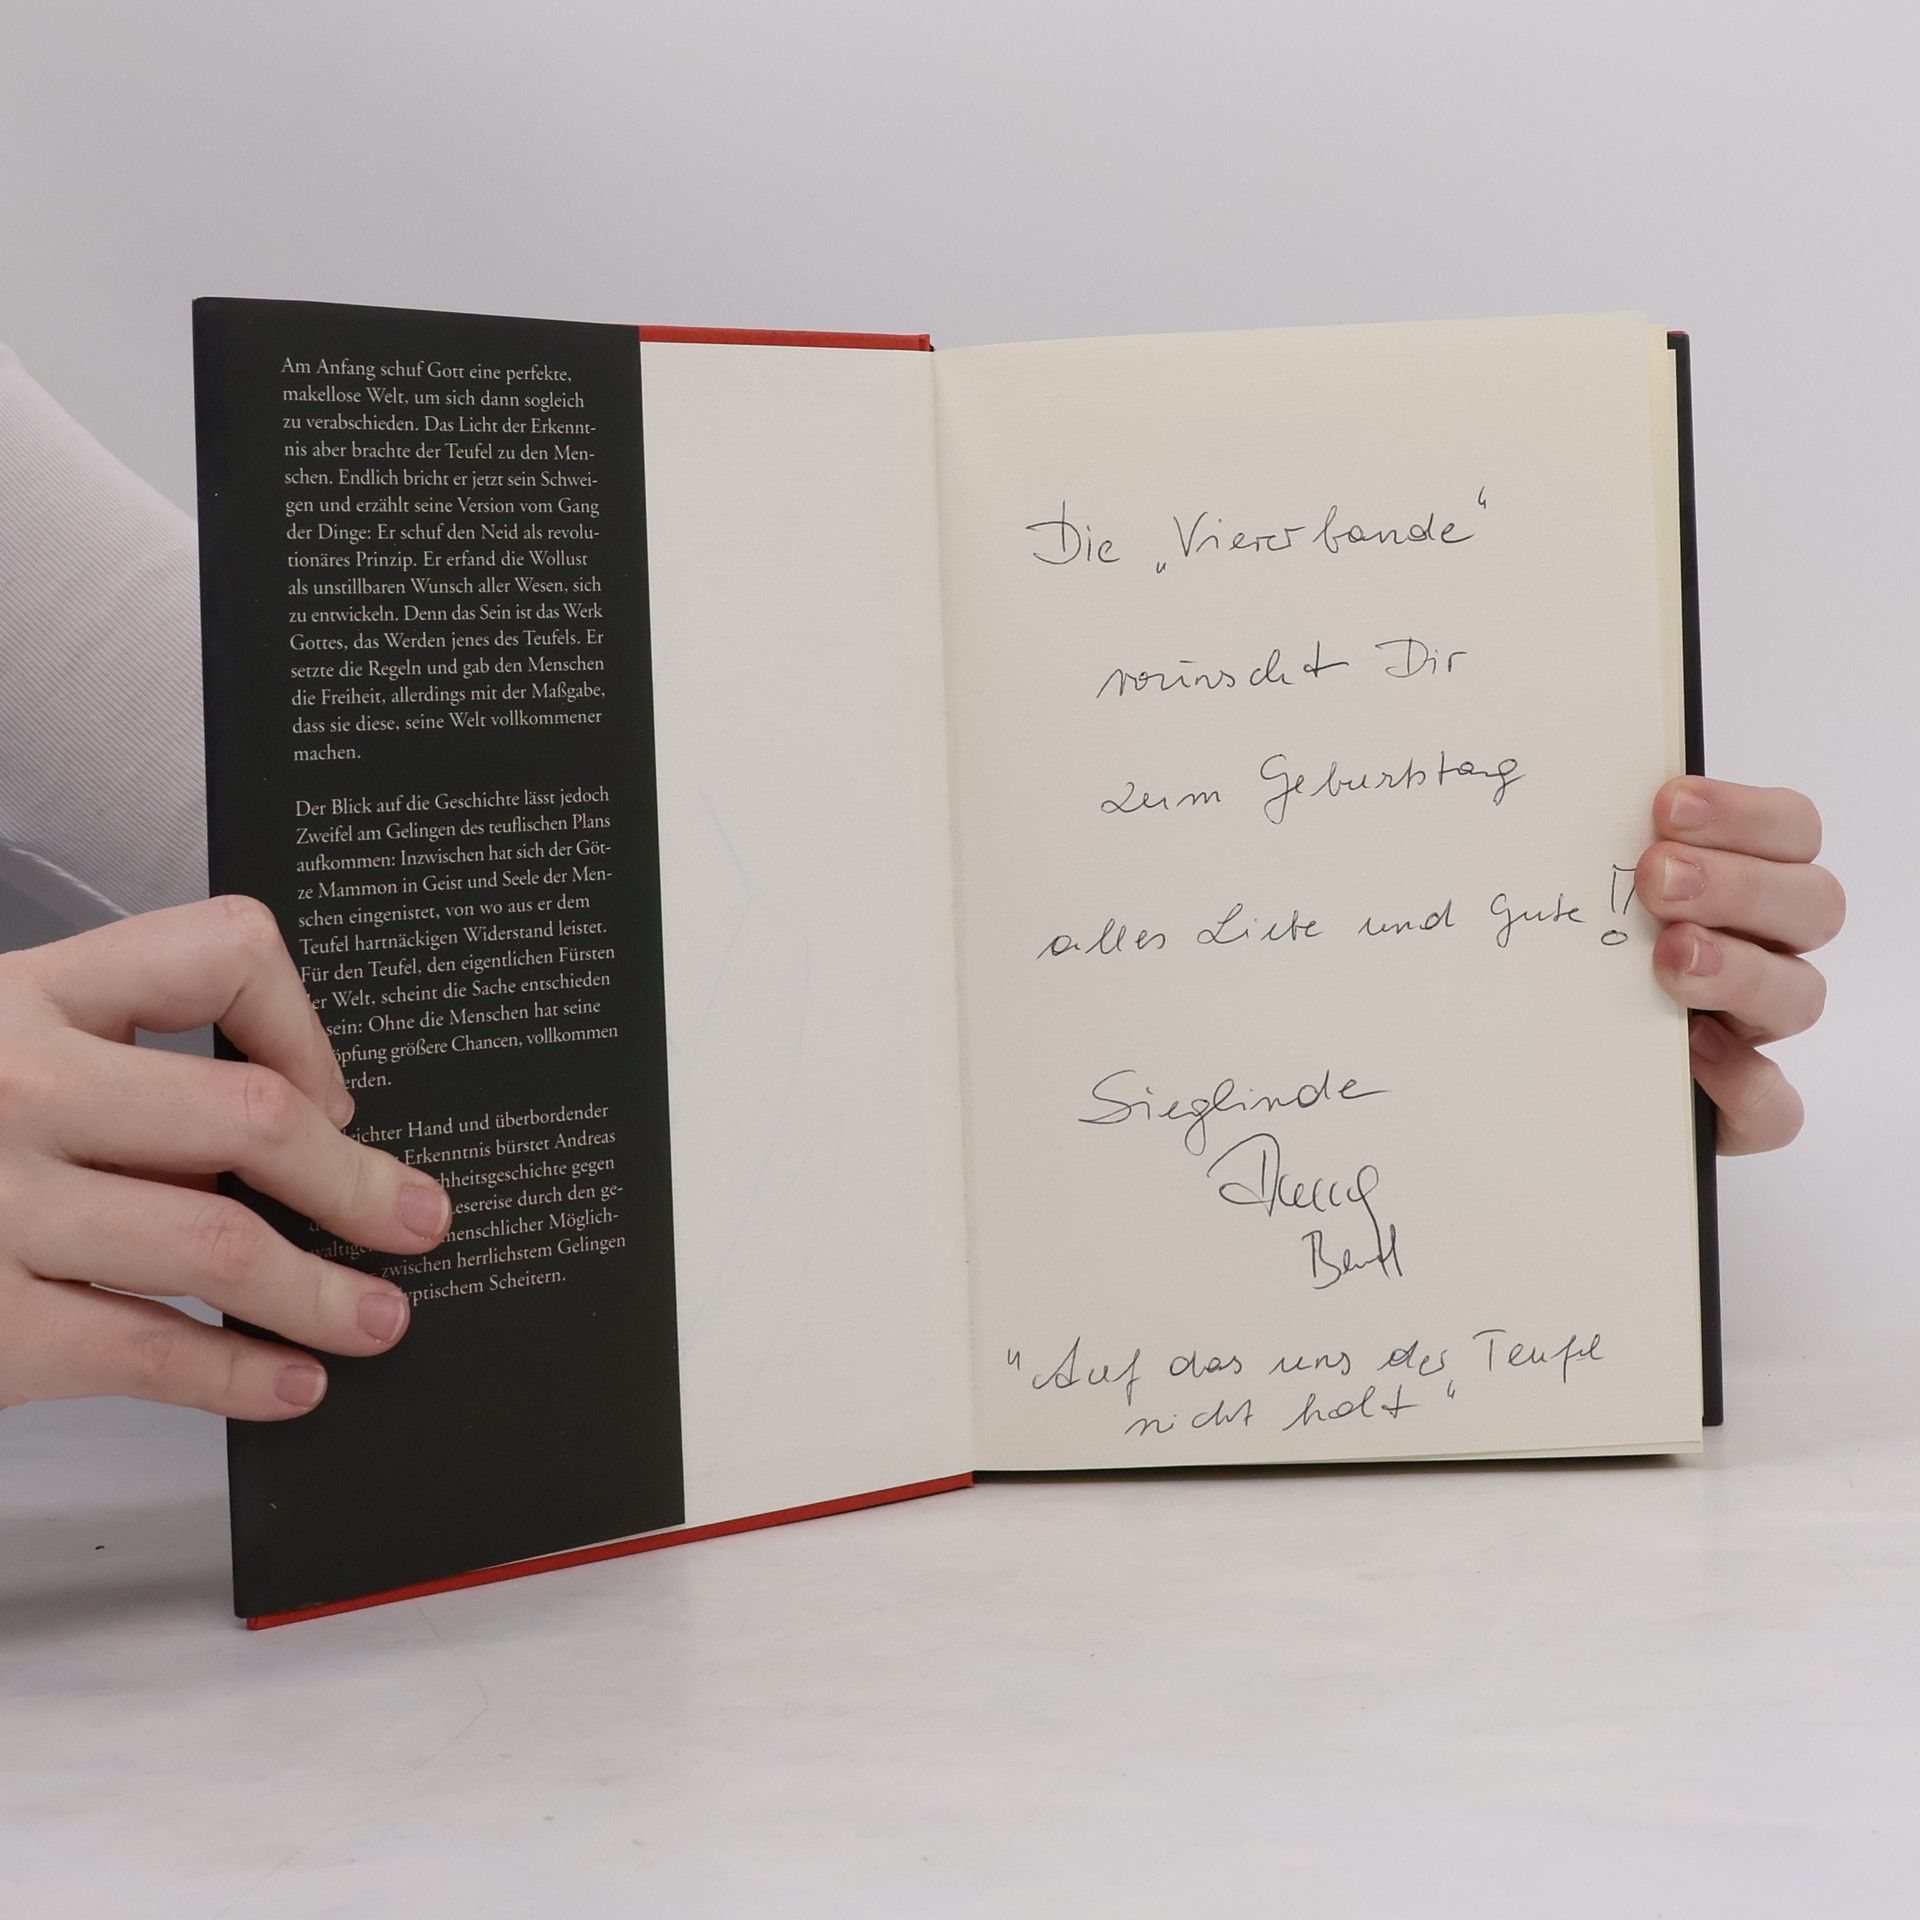 Am Anfang schuf Gott eine perfekte,
makellose Welt, um sich dann sogleich
zu verabschieden. Das Licht der Erkennt-
nis aber brachte der Teufel zu den Men-
schen. Endlich bricht er jetzt sein Schwei-
gen und erzählt seine Version vom Gang
der Dinge: Er schuf den Neid als revolu-
tionäres Prinzip. Er erfand die Wollust
als unstillbaren Wunsch aller Wesen, sich
zu entwickeln. Denn das Sein ist das Werk
Gottes, das Werden jenes des Teufels. Er
setzte die Regeln und gab den Menschen
die Freiheit, allerdings mit der Maßgabe,
dass sie diese, seine Welt vollkommener
machen.
Der Blick auf die Geschichte lässt jedoch
Zweifel am Gelingen des teuflischen Plans
aufkommen: Inzwischen hat sich der Göt-
ze Mammon in Geist und Seele der Men-
schen eingenistet, von wo aus er dem
Teufel hartnäckigen Widerstand leistet.
Für den Teufel, den eigentlichen Fürsten
der Welt, scheint die Sache entschieden
sein: Ohne die Menschen hat seine
öpfung größere Chancen, vollkommen
erden.
eichter Hand und überbordender
Erkenntnis bürstet Andreas
hheitsgeschichte gegen
Lesereise durch den ge-
waltigen menschlicher Möglich-
zwischen herrlichstem Gelingen
yptischem Scheitern.
Die „Viererbande“
wünscht Dir
zum Geburtstag
alles Liebe und Gute!!
Sieglinde
"Auf das uns der Teufel
nicht holt"